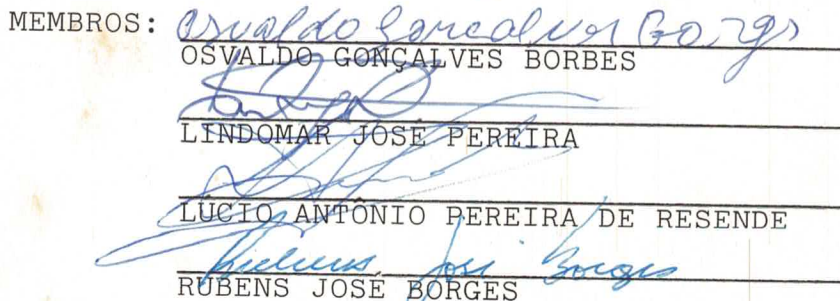 MEMBROS: Osvaldo Goncalves Borges
OSVALDO GONÇALVES BORBES
LINDOMAR JOSÉ PEREIRA
LÚCIO ANTÔNIO PEREIRA DE RESENDE
Rubens José Borges
RUBENS JOSÉ BORGES